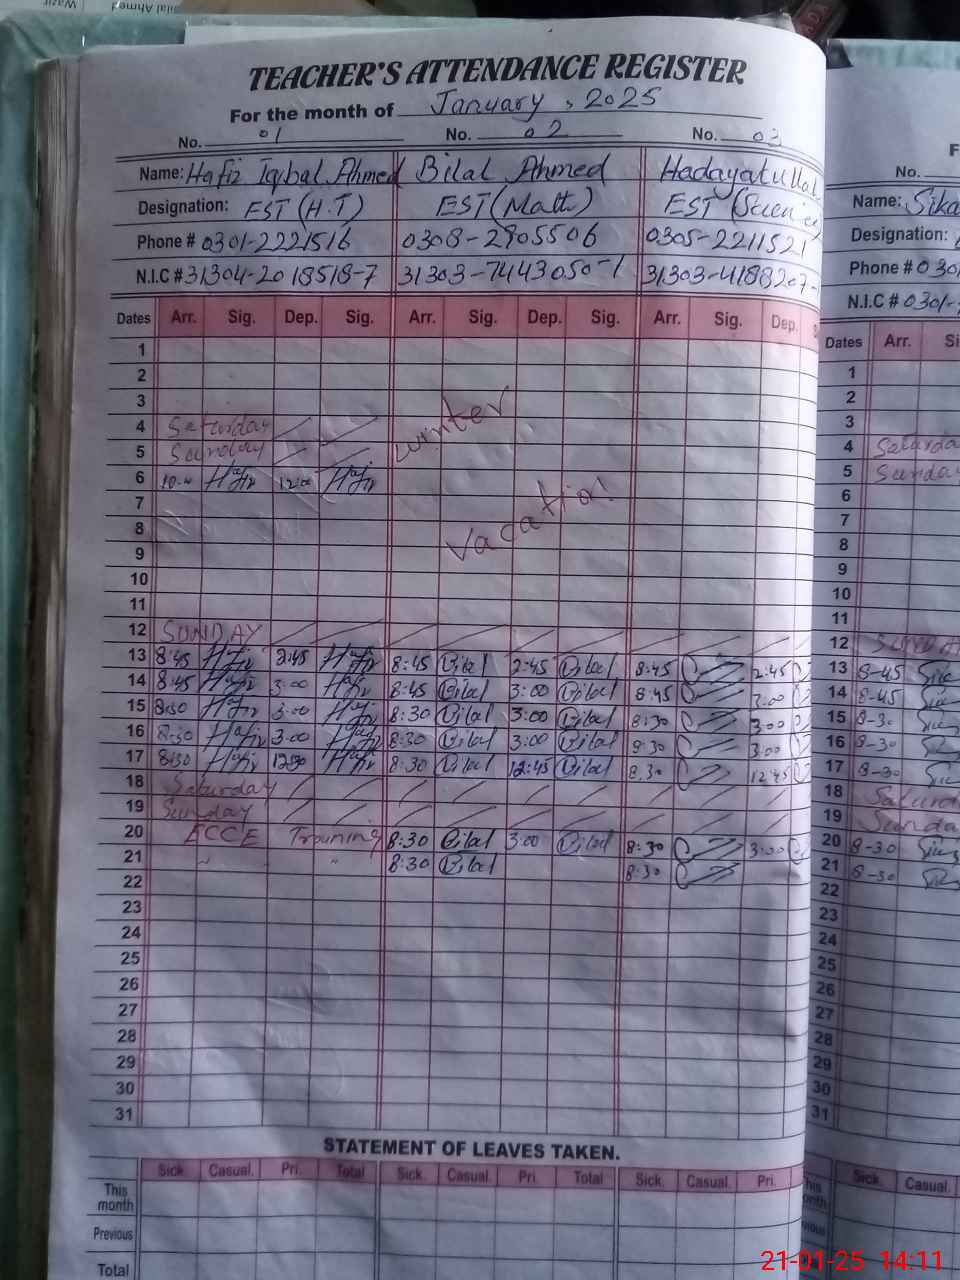 Bilal Ahmed
Wazir
TEACHER'S ATTENDANCE REGISTER
For the month of January, 2025
No. 01 No. 02 No. 03
Name: Hafiz Iqbal Ahmed Bilal Ahmed Hadayatullah
Designation: EST (H.T) EST (Math) EST (Science)
Phone # 0301-2221516 0308-2905506 0305-2211521
N.I.C # 31304-2018518-7 31303-7443050-1 31303-4188207-
Dates Arr. Sig. Dep. Sig. Arr. Sig. Dep. Sig. Arr. Sig. Dep. S
1
2
3
4 Saturday
5 Sunday
winter
6 Hafiz 12:00 Hafiz
7
8
vacation
9
10
11
12 SUNDAY
13 8:45 Hafiz 2:45 Hafiz 8:45 Bilal 2:45 Bilal 8:45 2:45
14 8:45 Hafiz 3:00 Hafiz 8:45 Bilal 3:00 Bilal 8:45 3:00
15 8:30 Hafiz 3:00 Hafiz 8:30 Bilal 3:00 Bilal 8:30 3:00
16 8:30 Hafiz 3:00 Hafiz 8:30 Bilal 3:00 Bilal 8:30 3:00
17 8:30 Hafiz 12:30 Hafiz 8:30 Bilal 12:45 Bilal 8:30 12:45
18 Saturday
19 Sunday
20 ECCE Training 8:30 Bilal 3:00 Bilal 8:30 3:00
21 " " 8:30 Bilal 8:30
22
23
24
25
26
27
28
29
30
31
STATEMENT OF LEAVES TAKEN.
Sick. Casual. Pri. Total Sick. Casual. Pri. Total Sick. Casual. Pri.
This month
Previous
Total
F
No.
Name: Sika
Designation:
Phone # 030
N.I.C # 0301-
Dates Arr. Si
1
2
3
4 Saturda
5 Sunday
6
7
8
9
10
11
12 SUNDA
13 8-45
14 8-45
15 8-30
16 8-30
17 8-30
18 Saturda
19 Sunda
20 8-30
21 8-30
22
23
24
25
26
27
28
29
30
31
Sick. Casual.
his
onth
ious
21-01-25 14:11